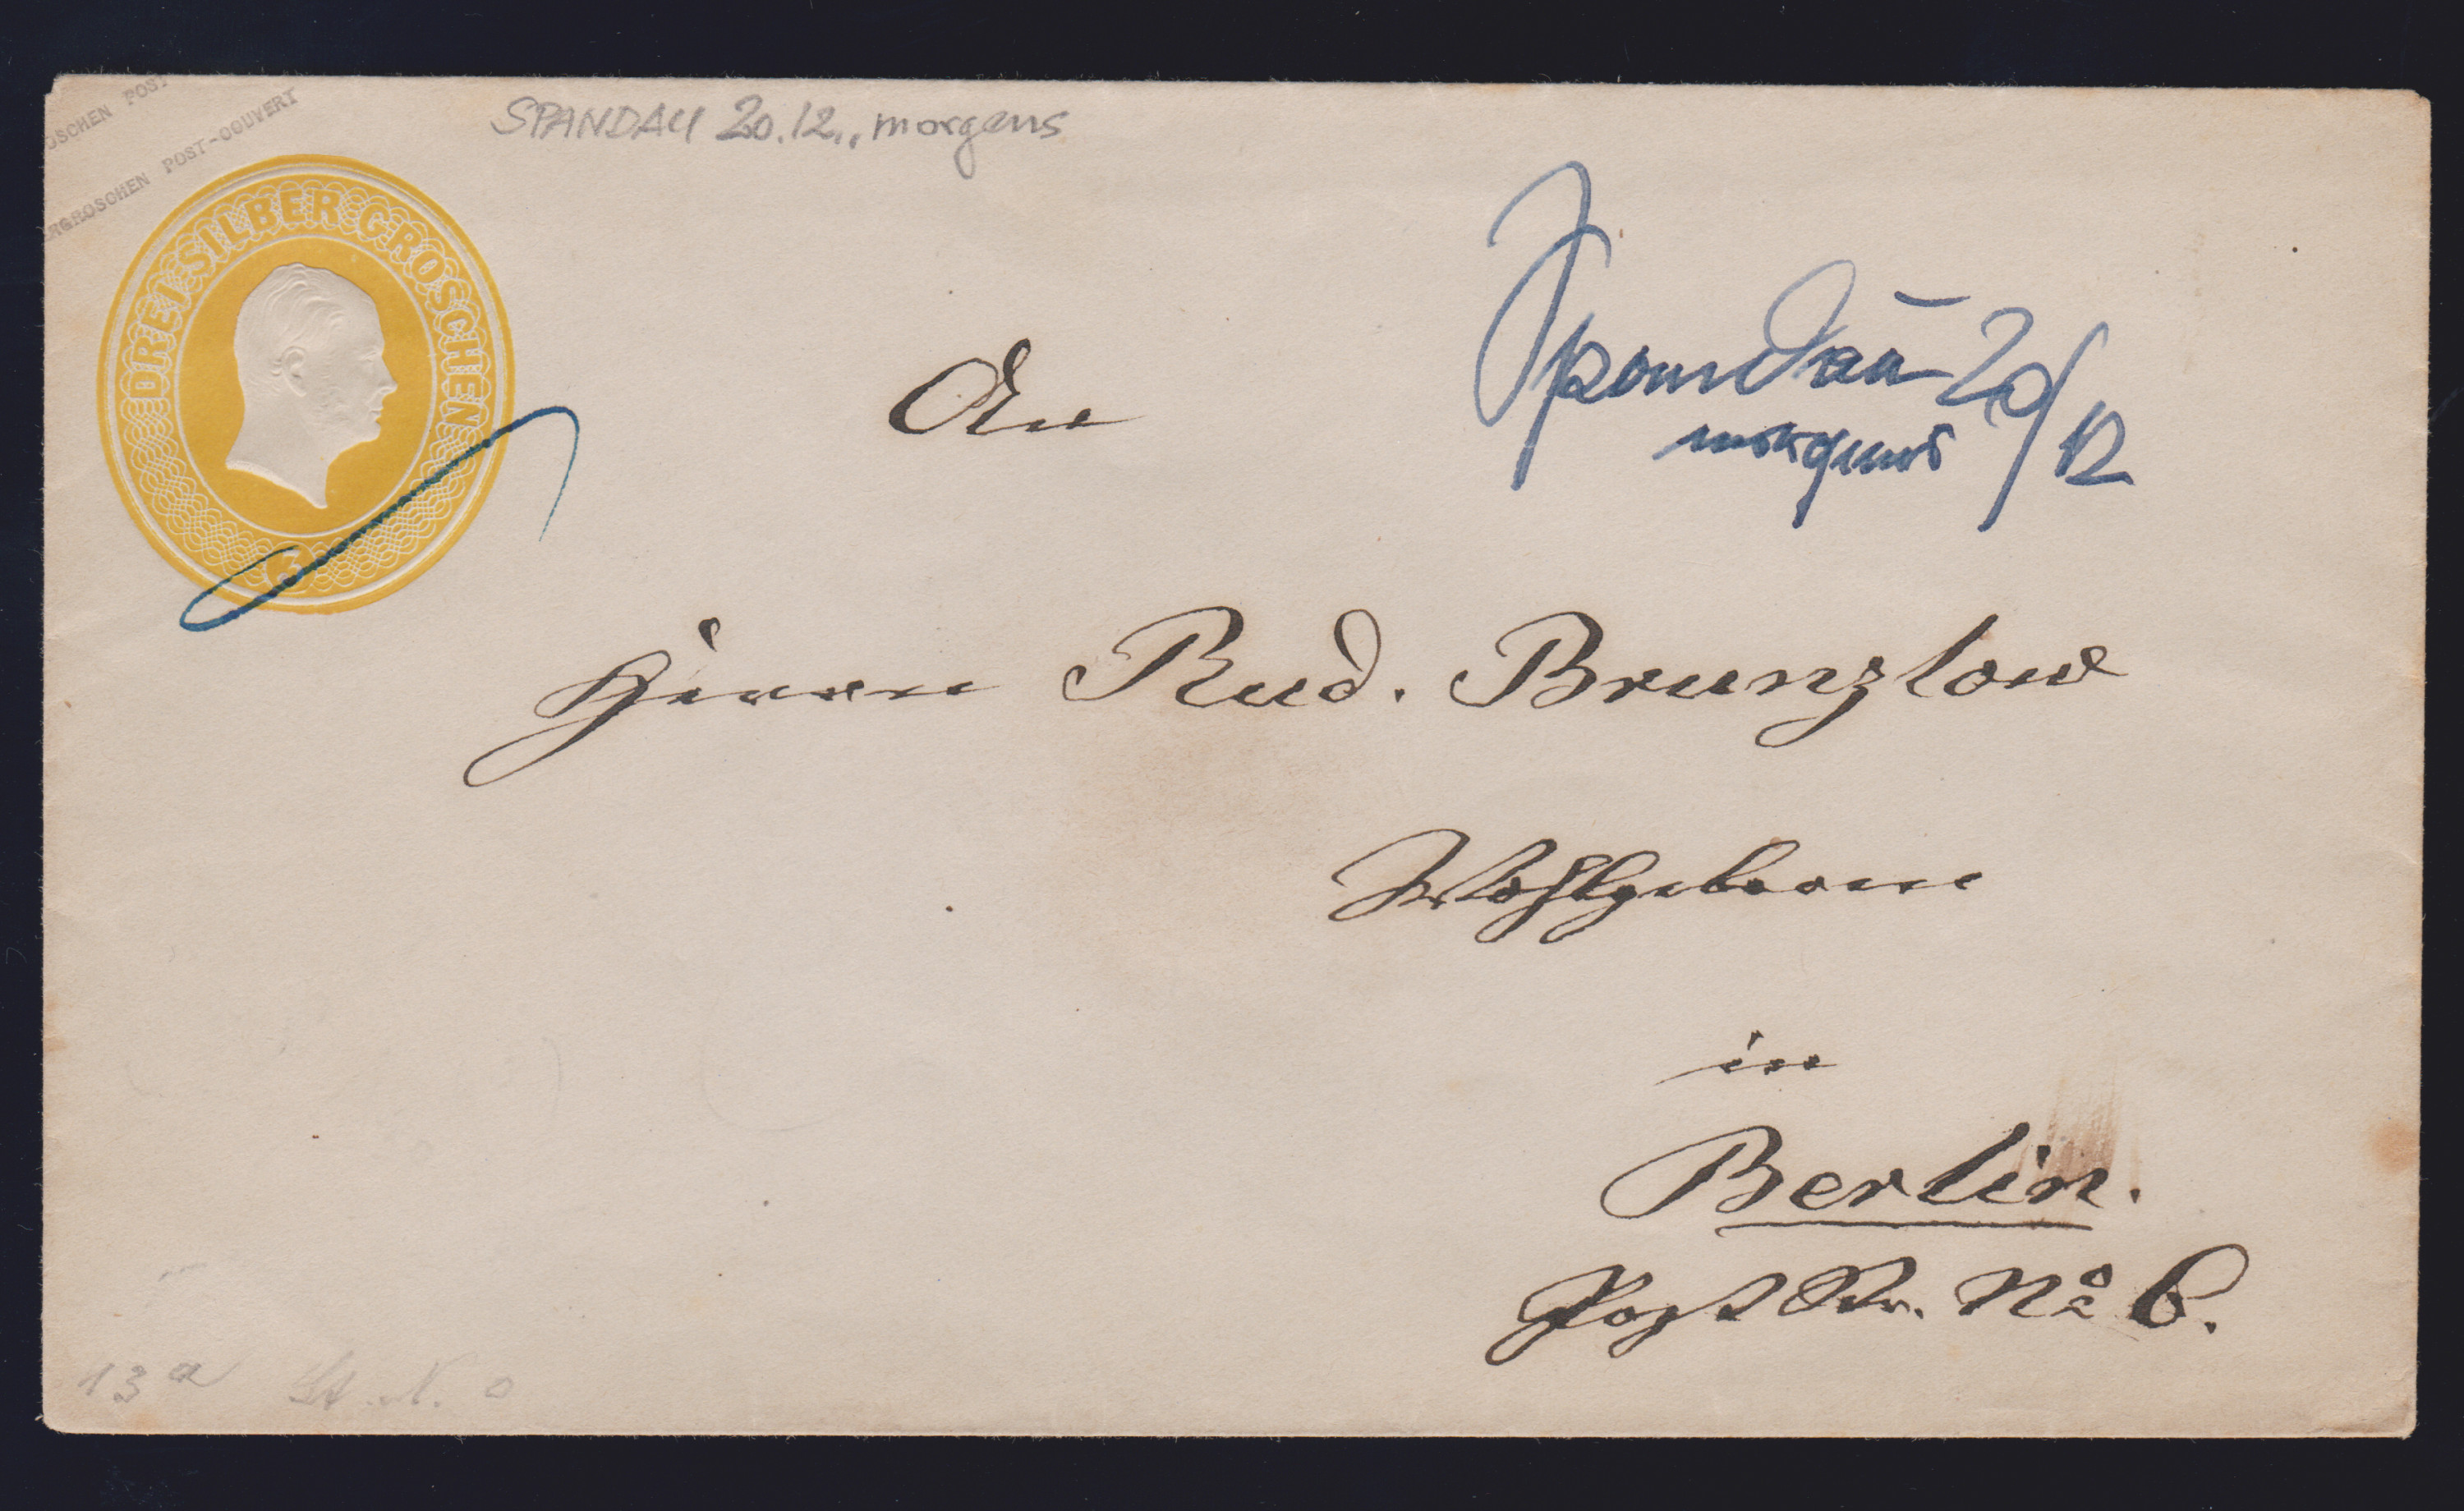 OSCHEN POST
RGROSCHEN POST-COUVERT
SPANDAU 20.12., morgens
DREI SILBERGROSCHEN
3
Spandau 20/12
morgens
An
Herrn Rud. Brunzlow
Wohlgeboren
in
Berlin.
Post Str. No 6.
13 a